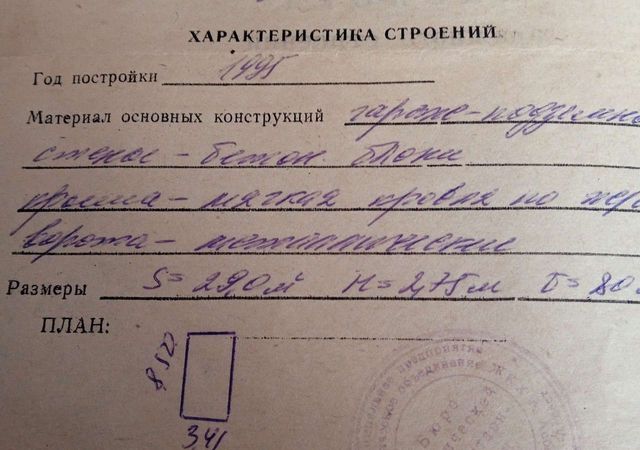 ХАРАКТЕРИСТИКА СТРОЕНИЙ
Год постройки 1995
Материал основных конструкций гараж-подземн
стены - бетон. блоки
крыша - мягкая кровля по
ворота - металлические
Размеры S= 29,0 м H= 2,75 м
ПЛАН:
8,52
3,41
Бюро